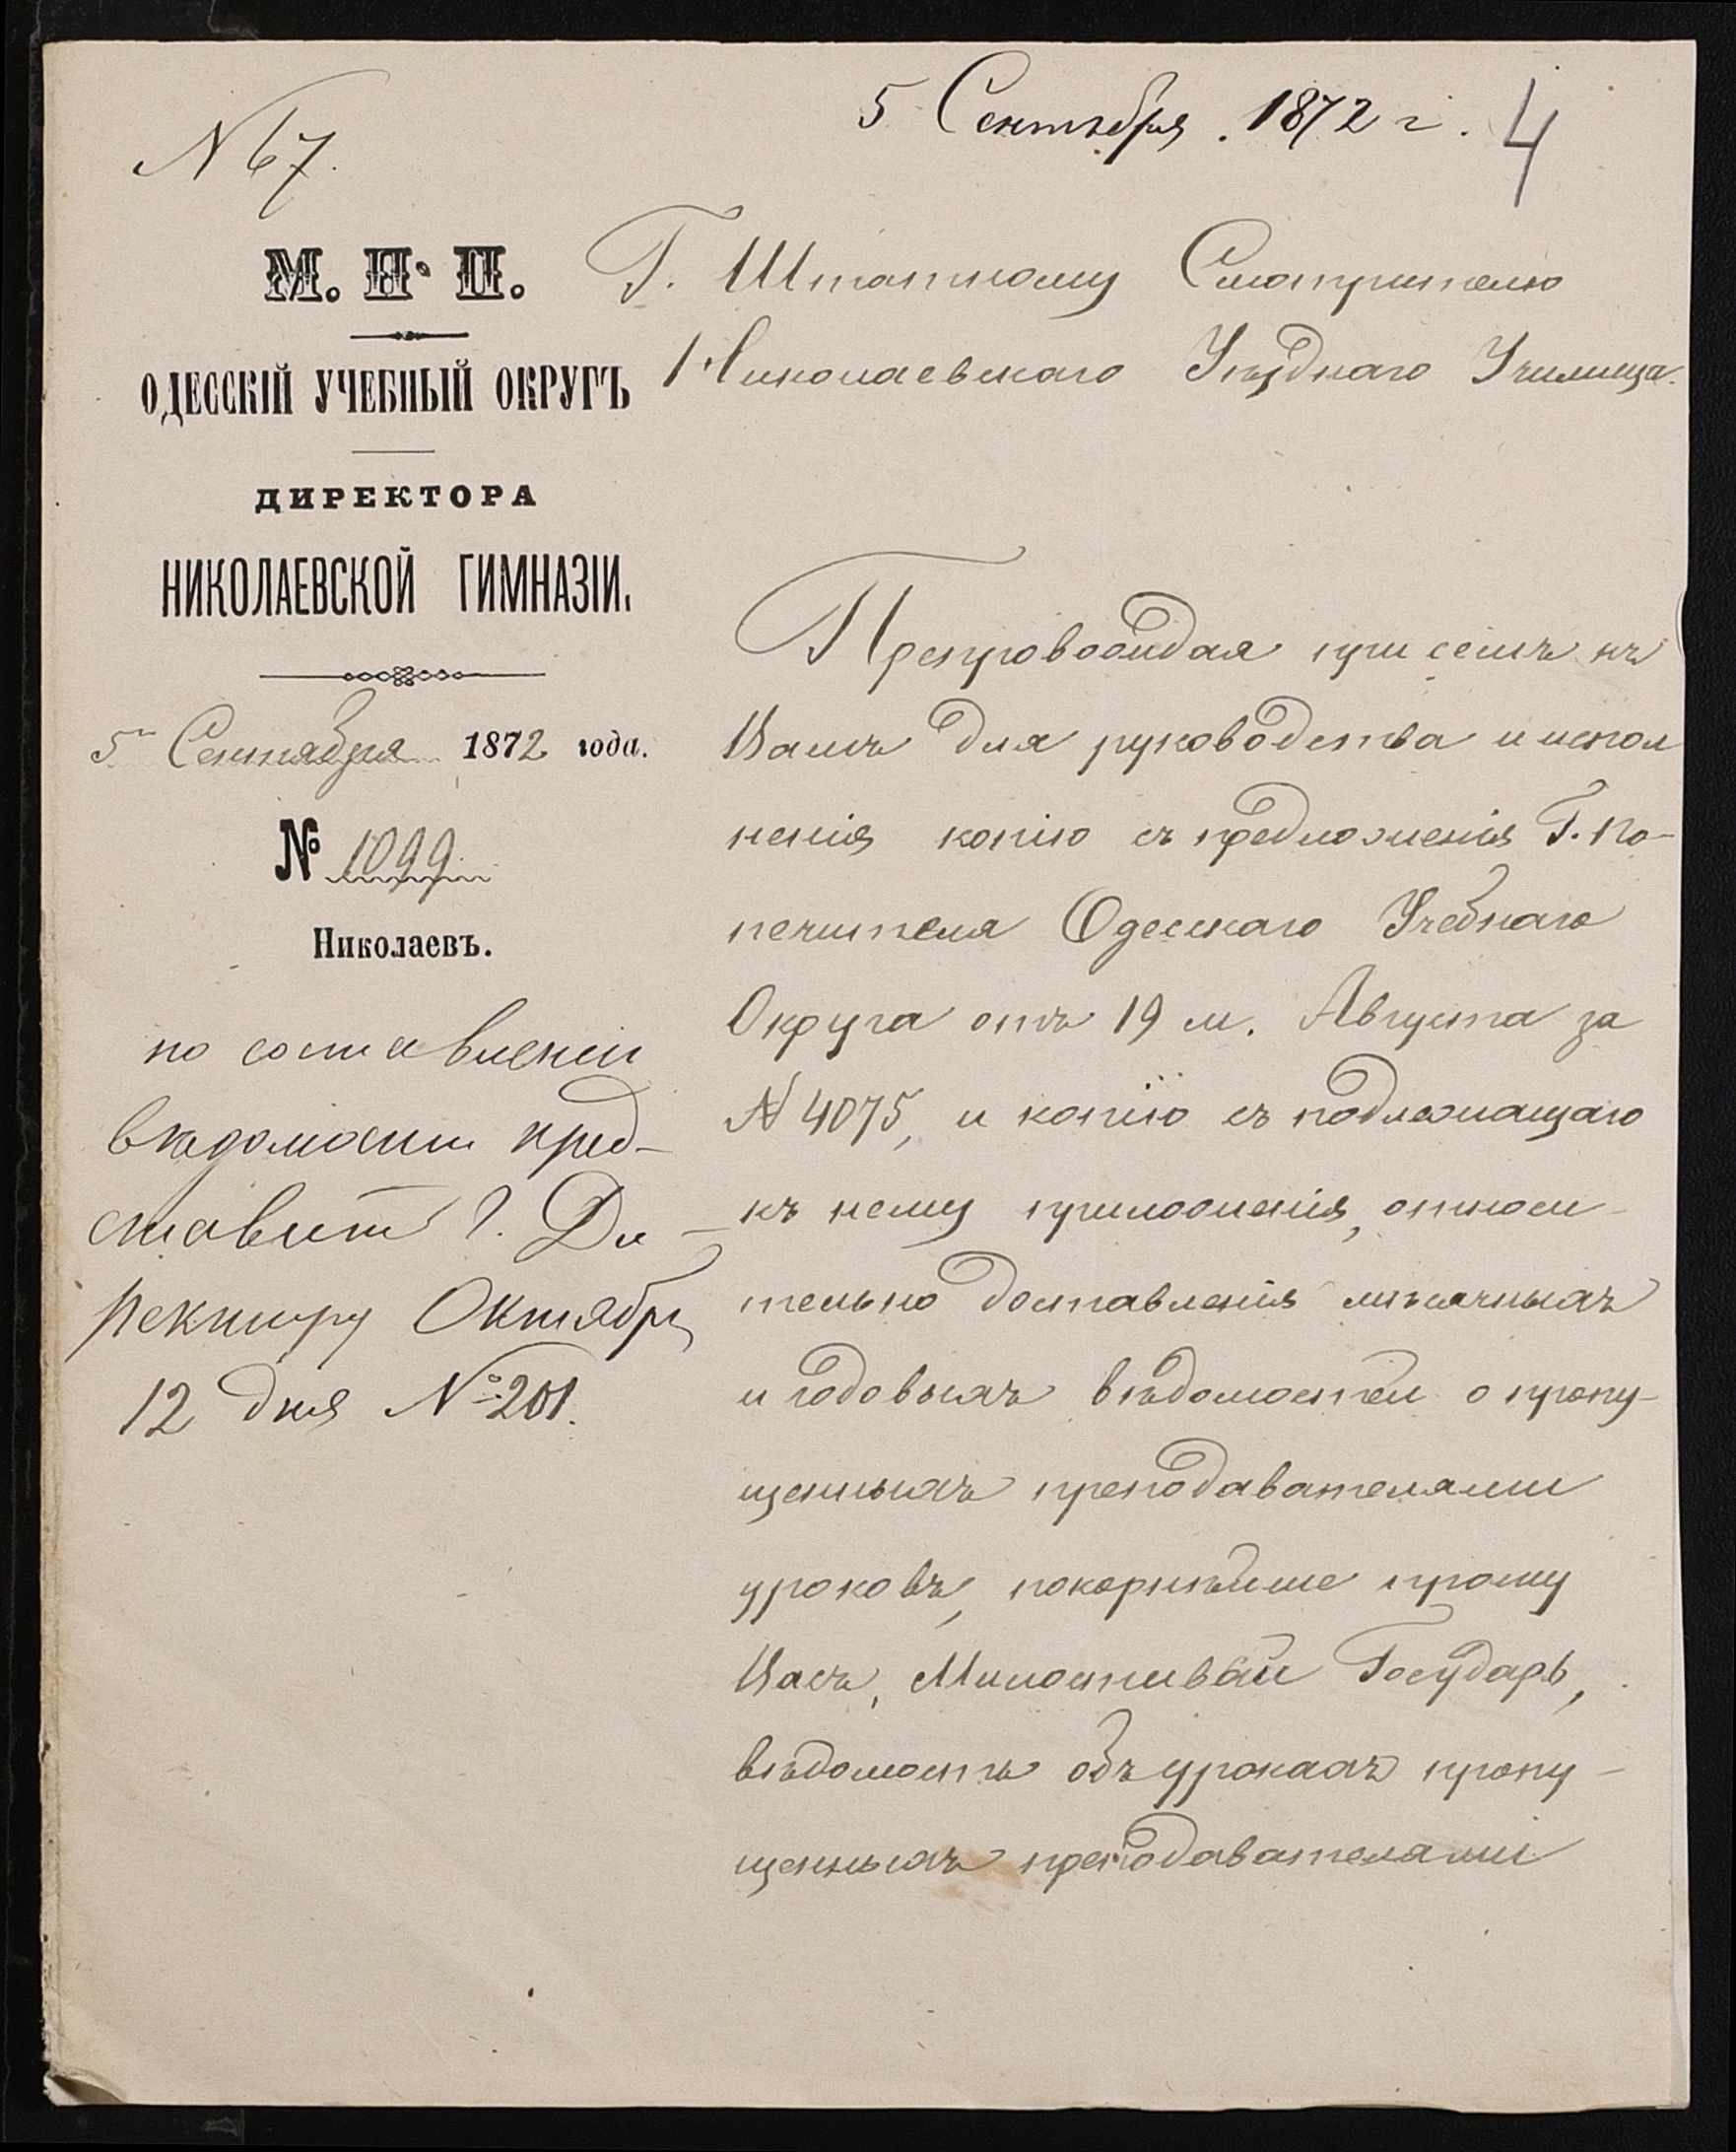 5 Сентября. 1872 г.
4
N 67.
М. Н. П.
ОДЕССКІЙ УЧЕБНЫЙ ОКРУГЪ
ДИРЕКТОРА
НИКОЛАЕВСКОЙ ГИМНАЗІИ.
5 Сентября 1872 года.
№ 1099
Николаевъ.
по составленіи
вѣдомости пред-
ставить Г. Ди-
ректору Октября
12 дня № 201.
Г. Штатному Смотрителю
Николаевскаго Уѣзднаго Училища.
Препровождая при семъ къ
Вамъ для руководства и испол
ненія копію съ предложенія Г. По-
печителя Одесскаго Учебнаго
Округа отъ 19 м. Августа за
N 4075, и копію съ подлежащаго
къ нему приложенія, относи-
тельно доставленія мѣсячныхъ
и годовыхъ вѣдомостей о пропу-
щенныхъ преподавателями
уроковъ, покорнѣйше прошу
Васъ, Милостивый Государь,
вѣдомость объ урокахъ пропу-
щенныхъ преподавателями